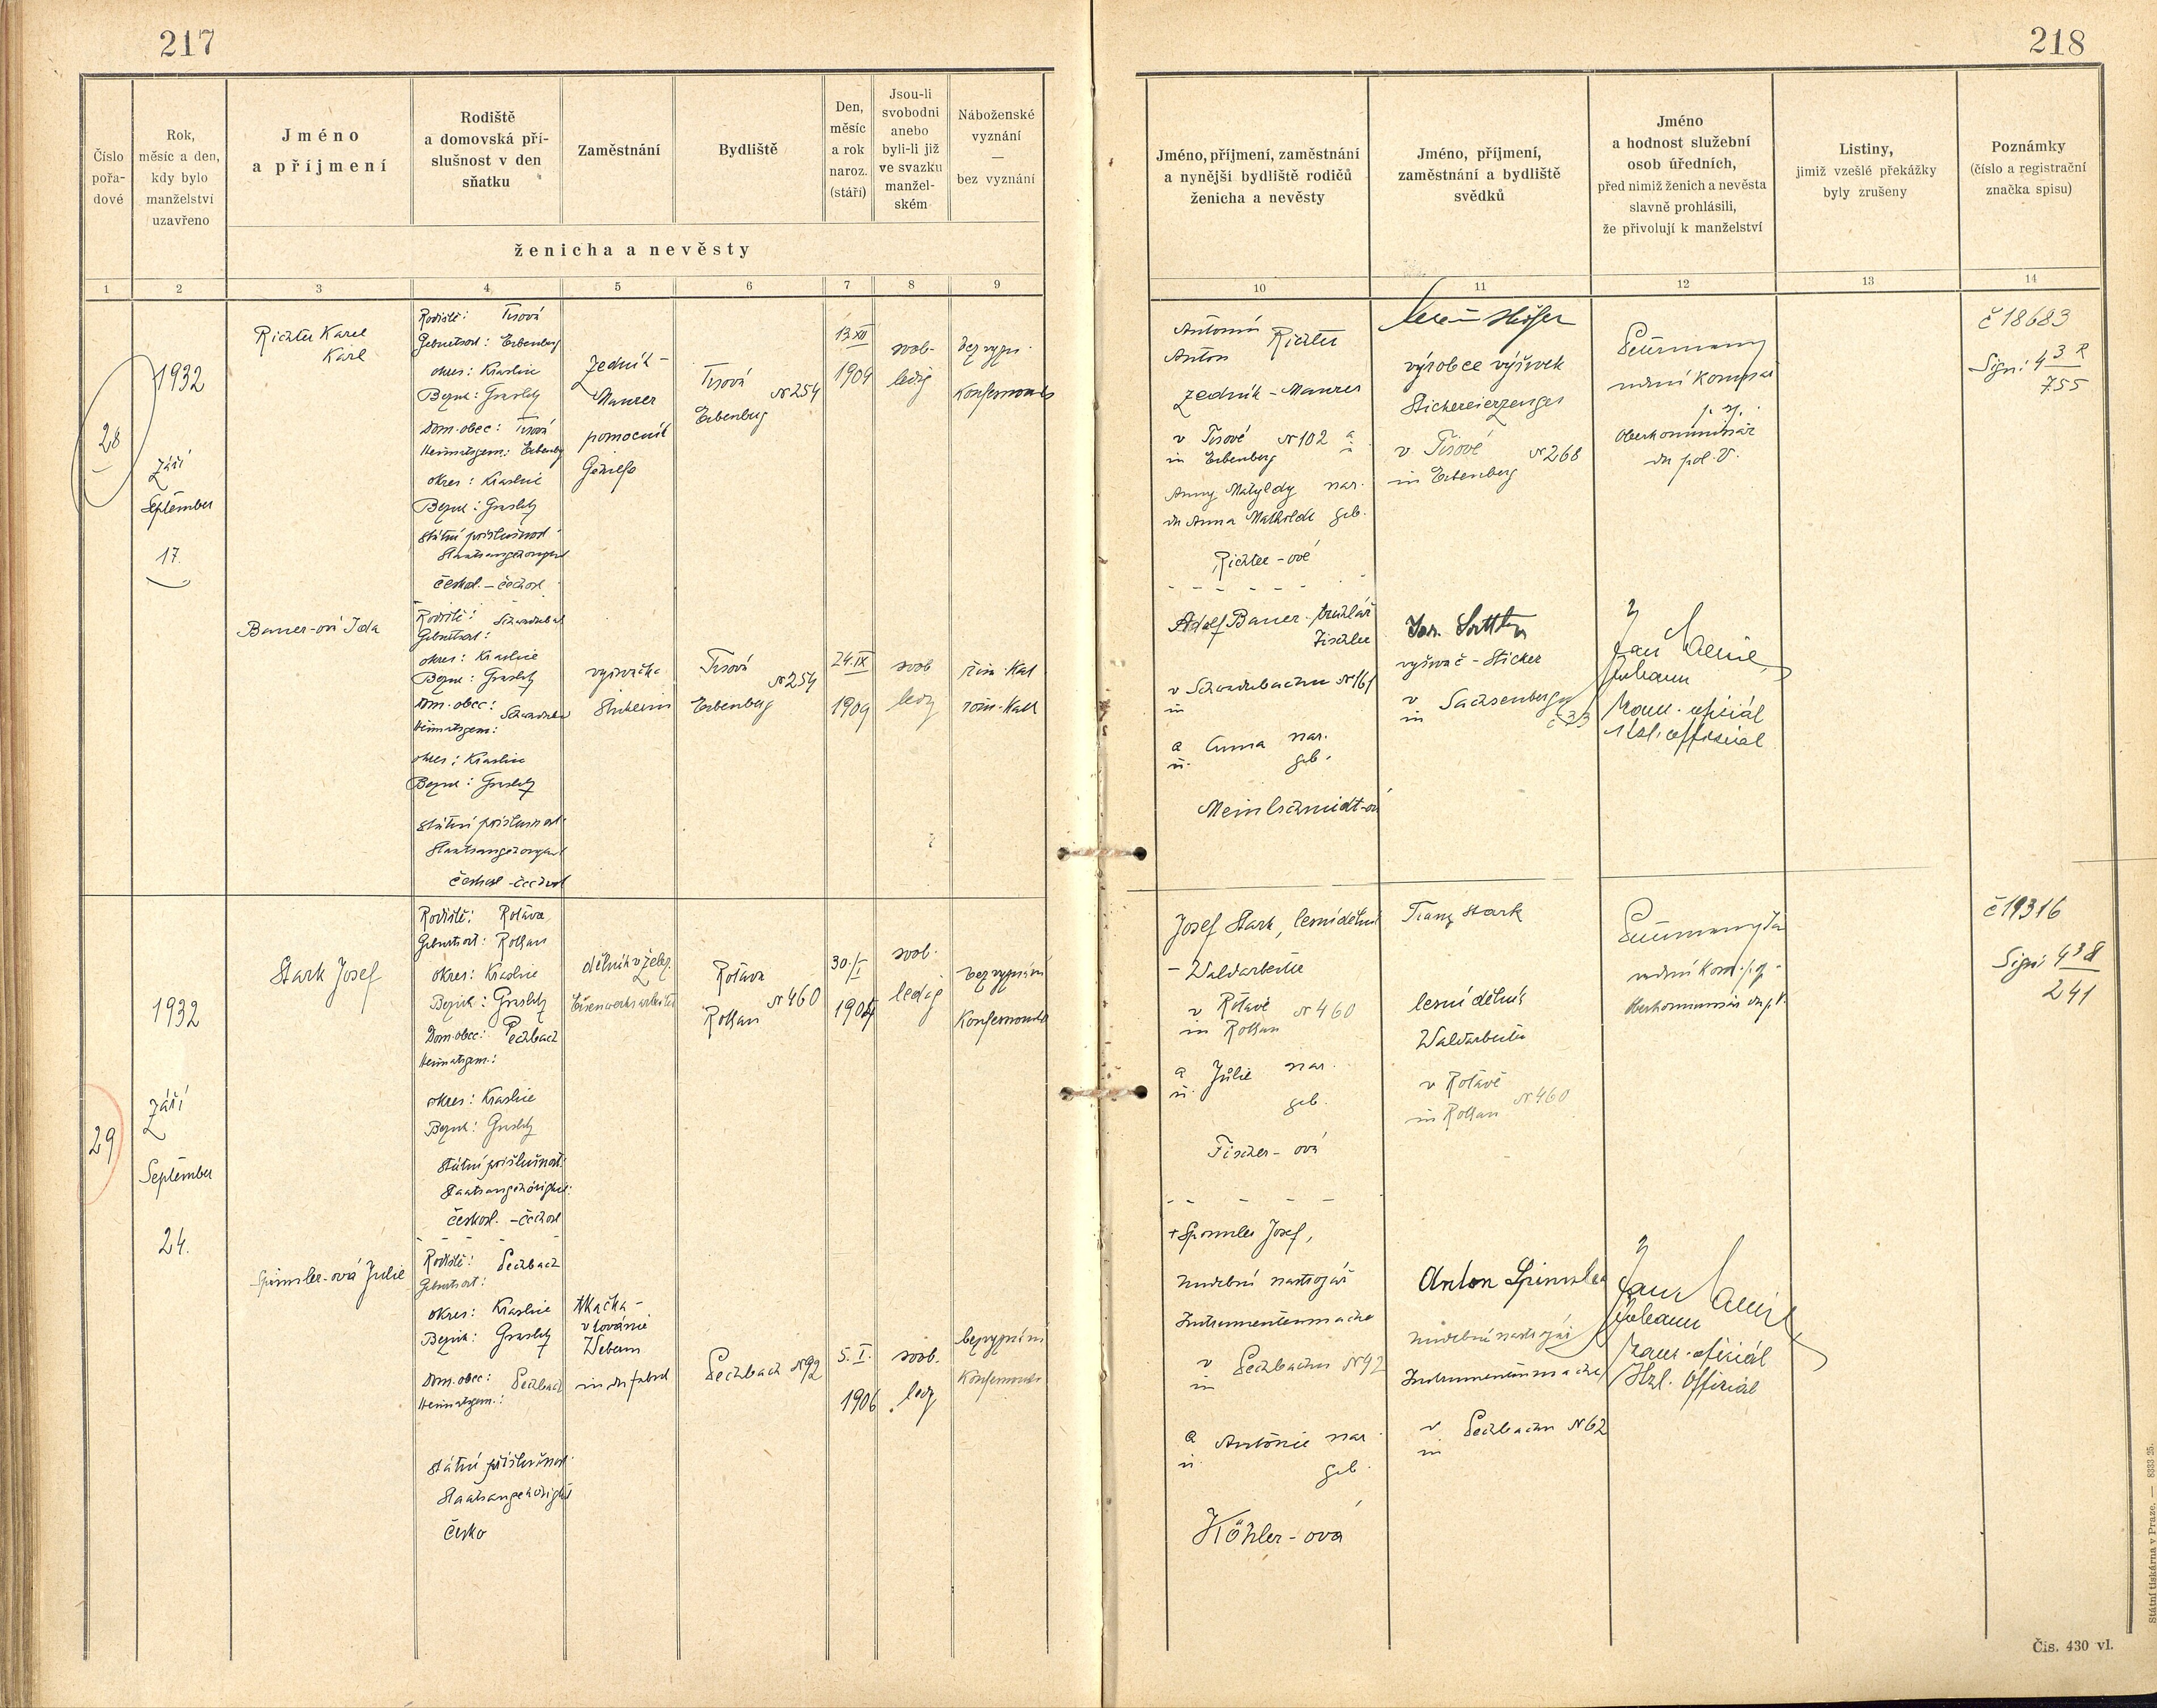 217
Číslo
pořa-
dové
Rok,
měsíc a den,
kdy bylo
manželství
uzavřeno
Jméno
a příjmení
Rodiště
a domovská pří-
slušnost v den
sňatku
Zaměstnání
Bydliště
Den,
měsíc
a rok
naroz.
(stáří)
Jsou-li
svobodni
anebo
byli-li již
ve svazku
manžel-
ském
Náboženské
vyznání
—
bez vyznání
ženicha a nevěsty
1 2 3 4 5 6 7 8 9
28
1932
září
September
17.
Richter Karel
Karl
Rodiště: Tisová
Geburtsort: Erbenberg
okres: Kraslice
Bezirk: Graslitz
Dom. obec: Tisová
Heimatsgem: Erbenberg
okres: Kraslice
Bezirk: Graslitz
státní příslušnost
Staatsangehörigkeit
českosl. - čechosl.
Zedník -
Maurer
pomocník
Gehilfe
Tisová
N254
Erbenberg
13 XII
1904
svob.
ledig
bez vyzn.
Konfessionslos
Bauer-ová Ida
Rodiště:
Geburtsort:
okres: Kraslice
Bezirk: Graslitz
Dom. obec:
Heimatsgem:
okres: Kraslice
Bezirk: Graslitz
státní příslušnost
Staatsangehörigkeit
českosl - čechosl
vyšívačka
Stickerin
Tisová
N254
Erbenberg
24. IX
1909
svob
ledig
řím. Kat
röm. Kath
29
1932
září
September
24.
Stark Josef
Rodiště: Rotava
Geburtsort: Rothau
okres: Kraslice
Bezirk: Graslitz
Dom. obec: Pechbach
Heimatsgem.:
okres: Kraslice
Bezirk: Graslitz
státní příslušnost
Staatsangehörigkeit
českosl. - čechosl
dělník v želez.
Eisenwerksarbeiter
Rotava
N460
Rothau
30. I
1904
svob.
ledig
bez vyznání
Konfessionslos
Spinnler-ová Julie
Rodiště: Pechbach
Geburtsort:
okres: Kraslice
Bezirk: Graslitz
Dom. obec: Pechbach
Heimatsgem.:
státní příslušnost
Staatsangehörigkeit
česko
tkačka -
v továrně
Weberin
in der Fabrik
Pechbach N92
5. I.
1906
svob.
ledig
bez vyznání
Konfessionslos
218
Jméno, příjmení, zaměstnání
a nynější bydliště rodičů
ženicha a nevěsty
Jméno, příjmení,
zaměstnání a bydliště
svědků
Jméno
a hodnost služební
osob úředních,
před nimiž ženich a nevěsta
slavně prohlásili,
že přivolují k manželství
Listiny,
jimiž vzešlé překážky
byly zrušeny
Poznámky
(číslo a registrační
značka spisu)
10 11 12 13 14
Antonín
Richter
Anton
Zedník - Maurer
v Tisové N102 a
in Erbenberg u
Anny Matyldy nar.
der Anna Mathilde geb.
Richter-ové
výrobce výšivek
Stickereierzeuger
v Tisové N268
in Erbenberg
vrchní komisař
p. s.
Oberkommissär
der pol. V.
č 18683
Sign: 43 R
755
Adolf Bauer, truhlář
Tischler
v N161
in
a Anna nar.
u. geb.
Meinlschmidt-ová
vyšívač - Sticker
v Sachsenbergu
in č 33
Jan
Johann
kanc. oficiál
Kzl. Offizial
Josef Stark, lesní dělník
- Waldarbeiter
v Rotavě N460
in Rothau
a Julie nar.
u. geb.
Fischer-ová
Franz Stark
lesní dělník
Waldarbeiter
v Rotavě
N460
in Rothau
vrchní kom. p. s.
Oberkommissär der p. V.
č 19316
Sign: 43 R
241
+ Spinnler Josef,
hudební nástrojář
Instrumentenmacher
v Pechbachu N92
in
a Antonie nar.
u. geb.
Köhler-ová
Anton Spinnler
hudební nástrojář
Instrumentenmacher
v Pechbachu N62
in
Jan
Johann
kanc. oficiál
Kzl. Offizial
Státní tiskárna v Praze. — 8333-25.
Čís. 430 vl.